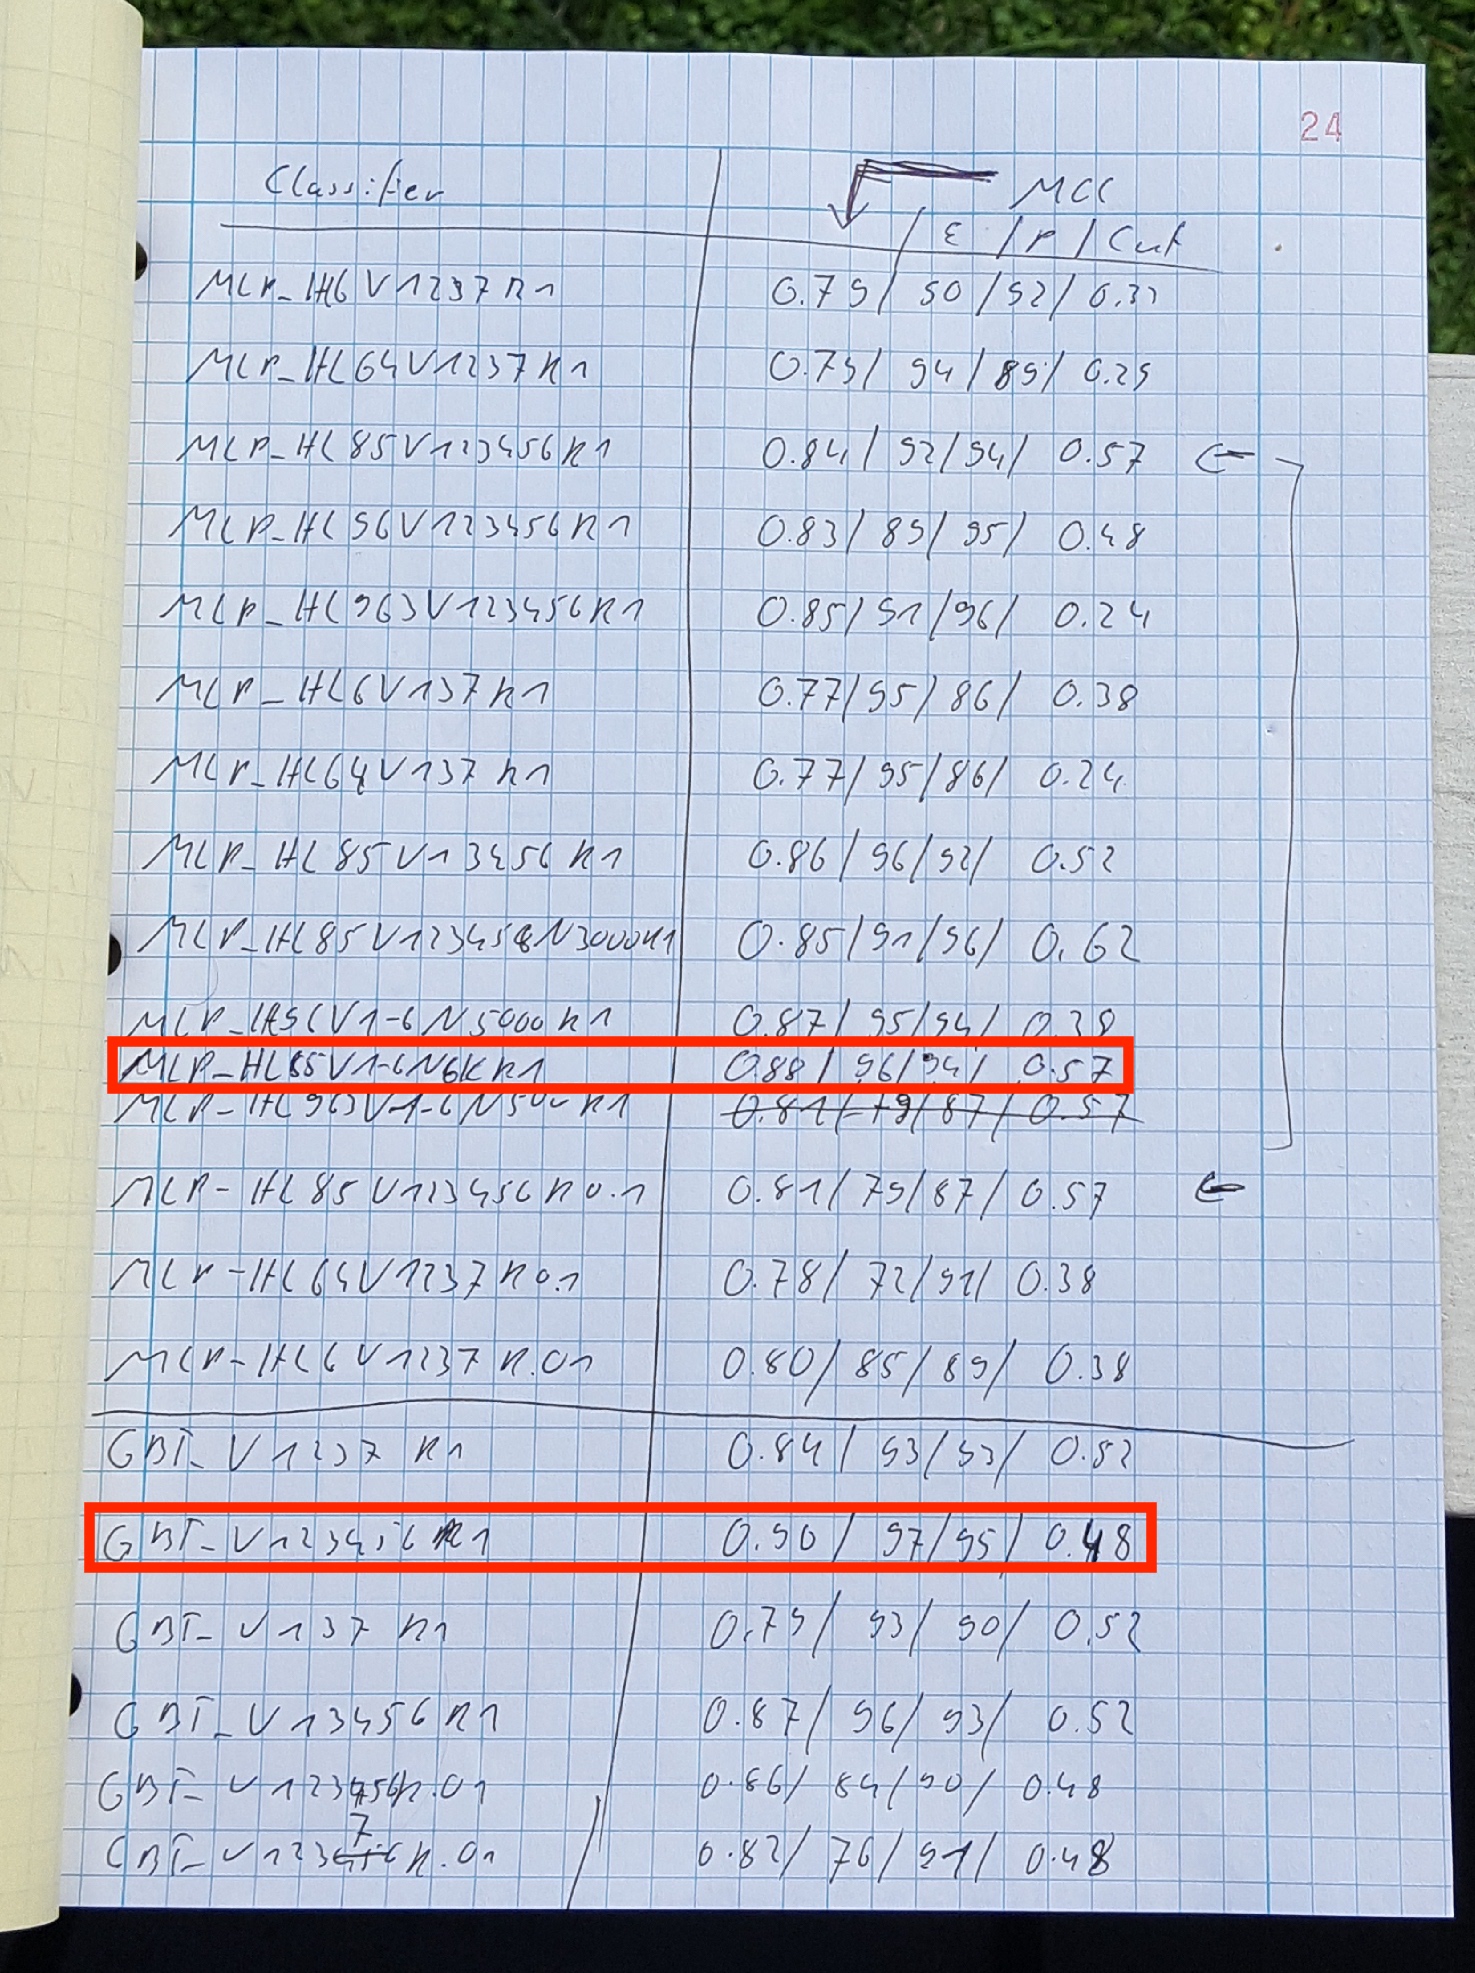 24
Classifier MCC
/ ε / P / Cut
MLP_HL6V1237R1 0.79/ 90 /92/ 0.33
MLP_HL64V1237R1 0.79/ 94 / 89/ 0.29
MLP_HL85V123456R1 0.84/ 92/94/ 0.57 ←
MLP_HL96V123456R1 0.83/ 89/ 95/ 0.48
MLP_HL963V123456R1 0.85/ 91/96/ 0.24
MLP_HL6V137R1 0.77/95/ 86/ 0.38
MLP_HL64V137R1 0.77/95/86/ 0.24
MLP_HL85V13456R1 0.86/96/92/ 0.52
MLP_HL85V123456N3000R1 0.85/91/96/ 0.62
MLP_HL96V1-6N5000R1 0.87/ 95/94/ 0.38
MLP_HL85V1-6N6KR1 0.88/ 96/94/ 0.57
MLP-HL963V1-6N500R1 0.81/79/87/ 0.57
MLP-HL85V123456R0.1 0.81/79/87/ 0.57 ←
MLP-HL64V1237R0.1 0.78/ 72/91/ 0.38
MLP-HL6V1237R.01 0.80/ 85/ 89/ 0.38
GBT_V1237R1 0.84/ 93/93/ 0.52
GBT_V123456R1 0.90/ 97/95/ 0.48
GBT_V137R1 0.79/ 93/ 90/ 0.52
GBT_V13456R1 0.87/ 96/ 93/ 0.52
GBT_V123456R.01 0.86/ 84/90/ 0.48
7
GBT_V123456R.01 0.82/ 76/ 91/ 0.48